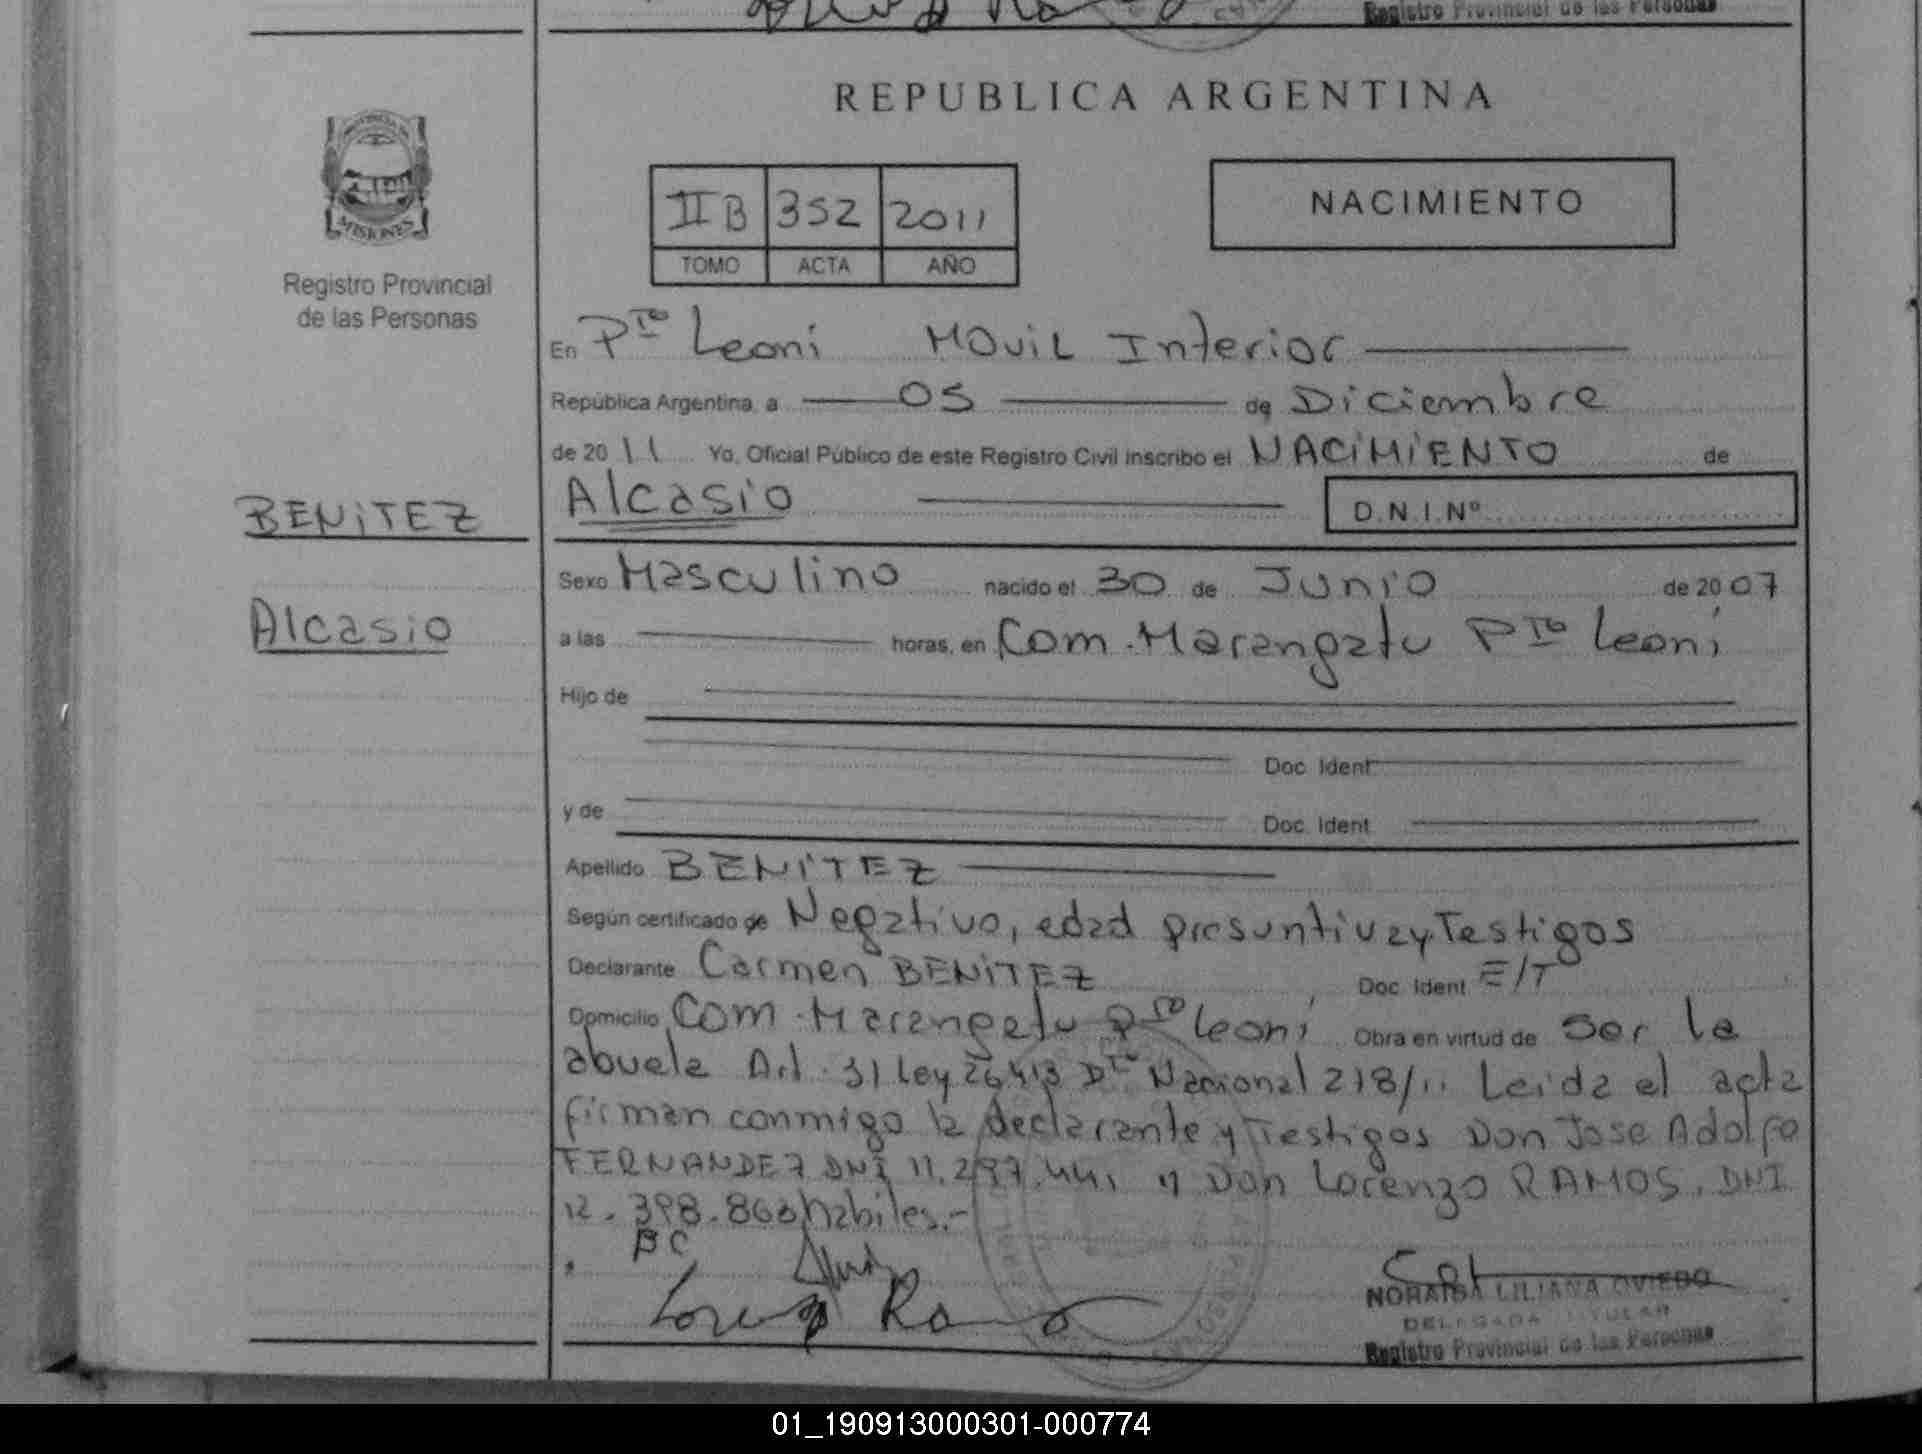 Registro Provincial de las Personas
REPUBLICA ARGENTINA
PROVINCIA DE
MISIONES
Registro Provincial
de las Personas
II B 352 2011
TOMO ACTA AÑO
NACIMIENTO
En Pto Leoni MOVIL Interior
República Argentina, a 05 de Diciembre
de 2011 Yo, Oficial Público de este Registro Civil inscribo el NACIMIENTO de
BENITEZ
Alcasio
Alcasio D.N.I.Nº
Sexo Masculino nacido el 30 de JUNIO de 2007
a las horas, en Com. Marangatu Pto Leoni
Hijo de
Doc. Ident
y de Doc. Ident
Apellido BENITEZ
Según certificado de Negativo, edad presuntiva y Testigos
Declarante Carmen BENITEZ Doc. Ident E/T
Domicilio Com. Marangatu Pto Leoni Obra en virtud de ser la
abuela Art. 31 Ley 26413 Dto Nacional 278/11 Leida el acta
firman conmigo la declarante y Testigos Don Jose Adolfo
FERNANDEZ DNI 11.297.441 y Don Lorenzo RAMOS. DNI
12.398.860 habiles.-
BC
Lorenzo Ramos
NORAIBA LILIANA OVIEDO
DELEGADA TITULAR
Registro Provincial de las Personas
01_190913000301-000774